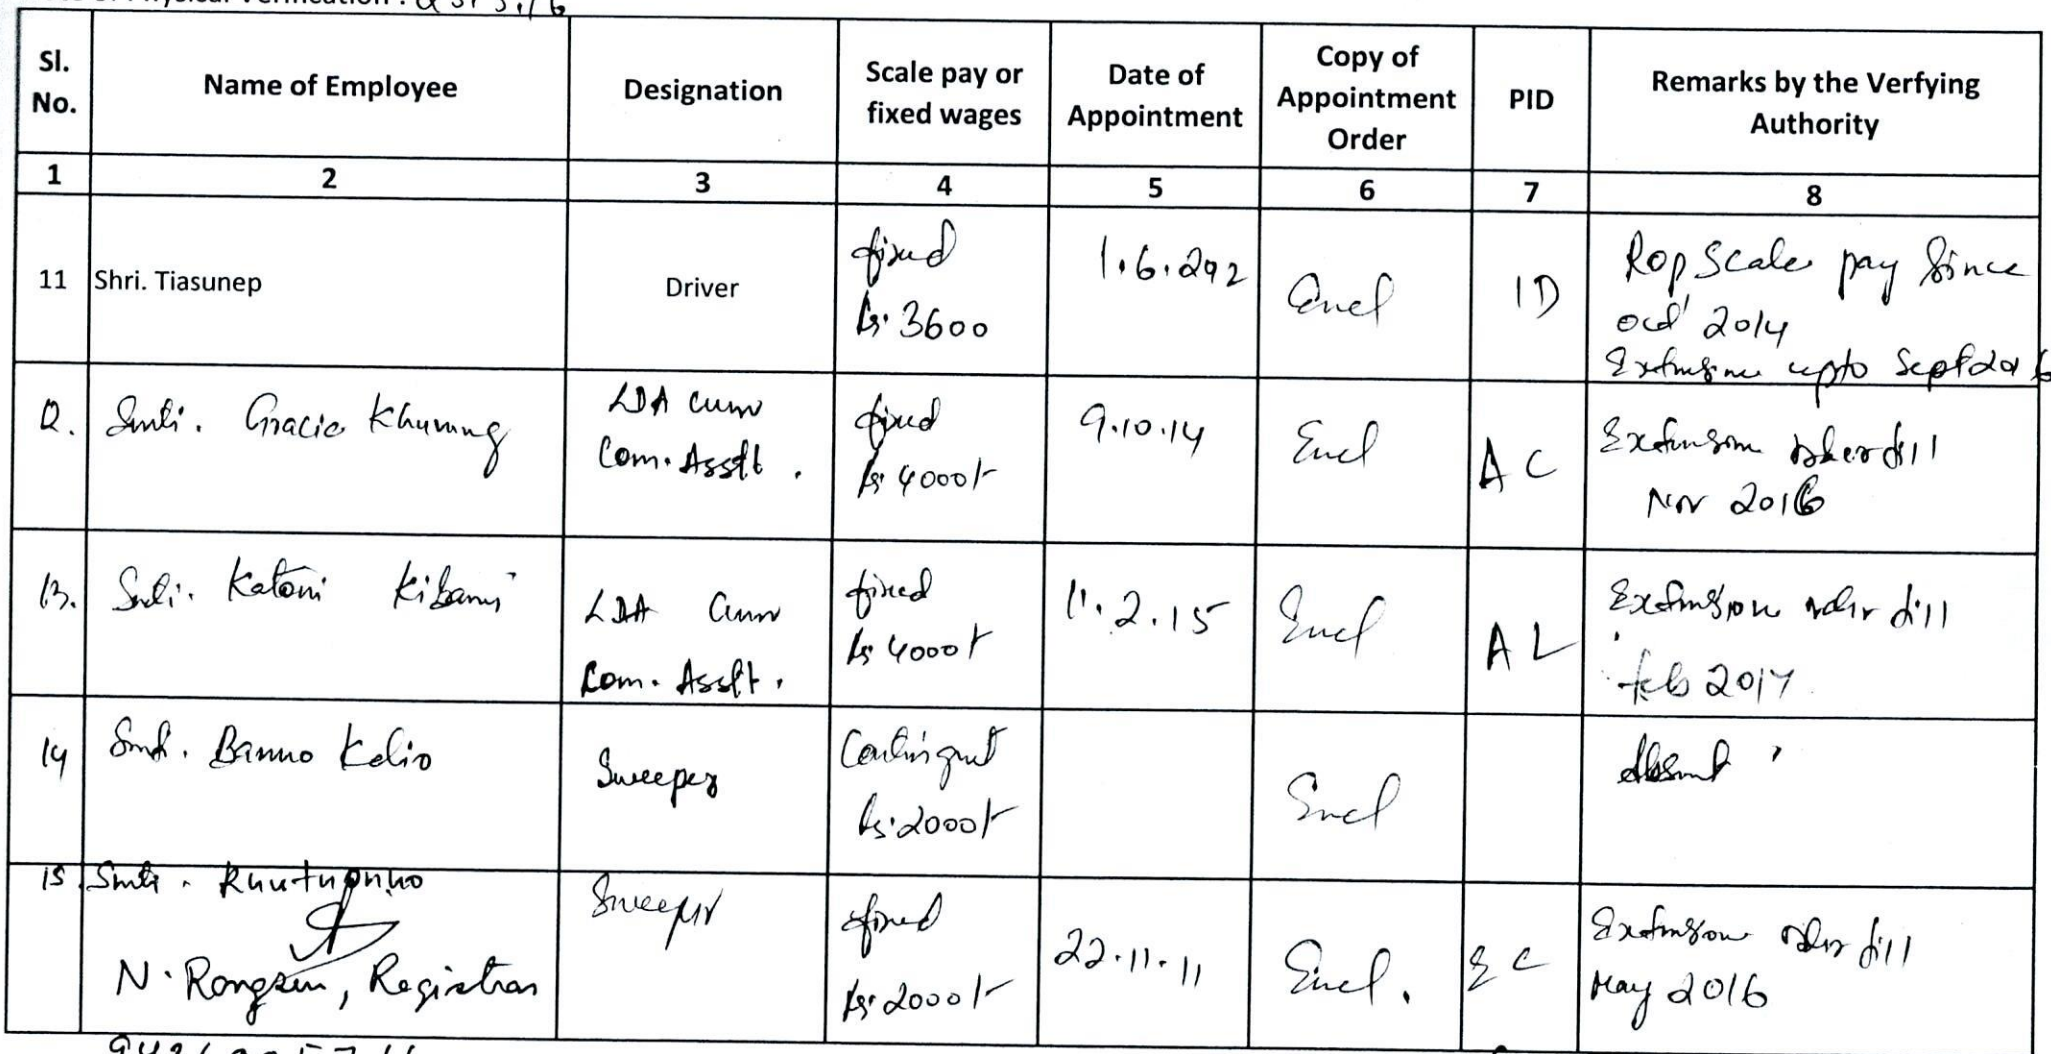 Sl. No. Name of Employee Designation Scale pay or fixed wages Date of Appointment Copy of Appointment Order PID Remarks by the Verfying Authority
1 2 3 4 5 6 7 8
11 Shri. Tiasunep Driver fixed Rs. 3600 1.6.292 Encl ID Rop Scale pay Since oct' 2014 Extension upto Sept 2016
12. Smti. Gracie LDA cum Com. Asstt. fixed Rs 4000/- 9.10.14 Encl AC Extension order till Nov 2016
13. Smti. Katoni LDA Cum Com. Asstt. fixed Rs 4000/- 11.2.15 Encl AL Extension order till feb 2017
14 Smti. Banno Kelio Sweeper Contingent Rs. 2000/- Encl Absent
15 Smti. Sweeper fixed Rs. 2000/- 22.11.11 Encl. EC Extension order till May 2016
N. Rongsen, Registrar